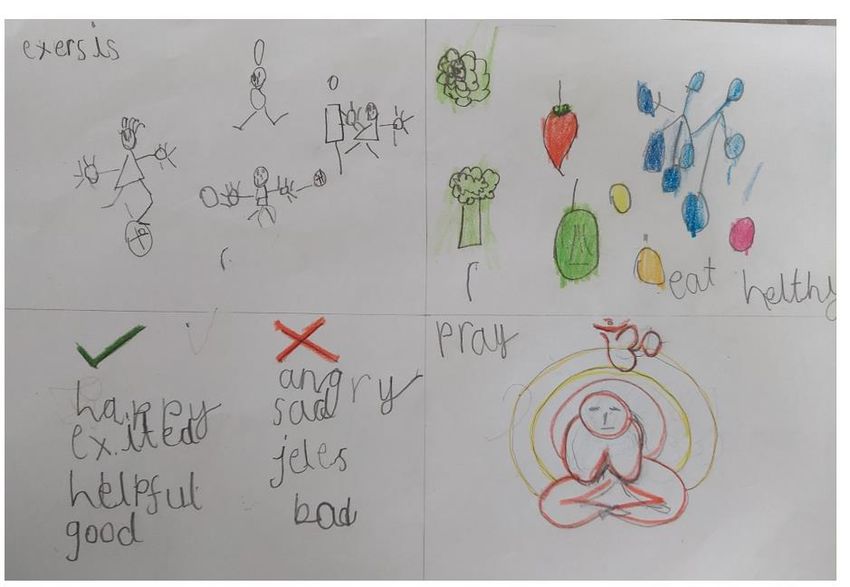 exersis
eat helthy
happy
exited
helpful
good
angry
sad
jeles
bad
pray
ॐ